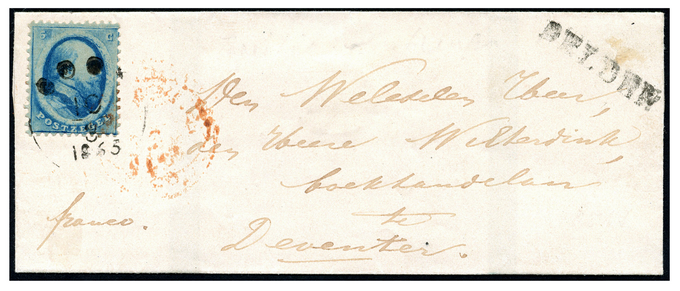 5 C
POSTZEGEL
1865
DELDEN
Den Weledelen Heer,
den Heere Wilterdink,
boekhandelaar
te
Deventer.
franco.